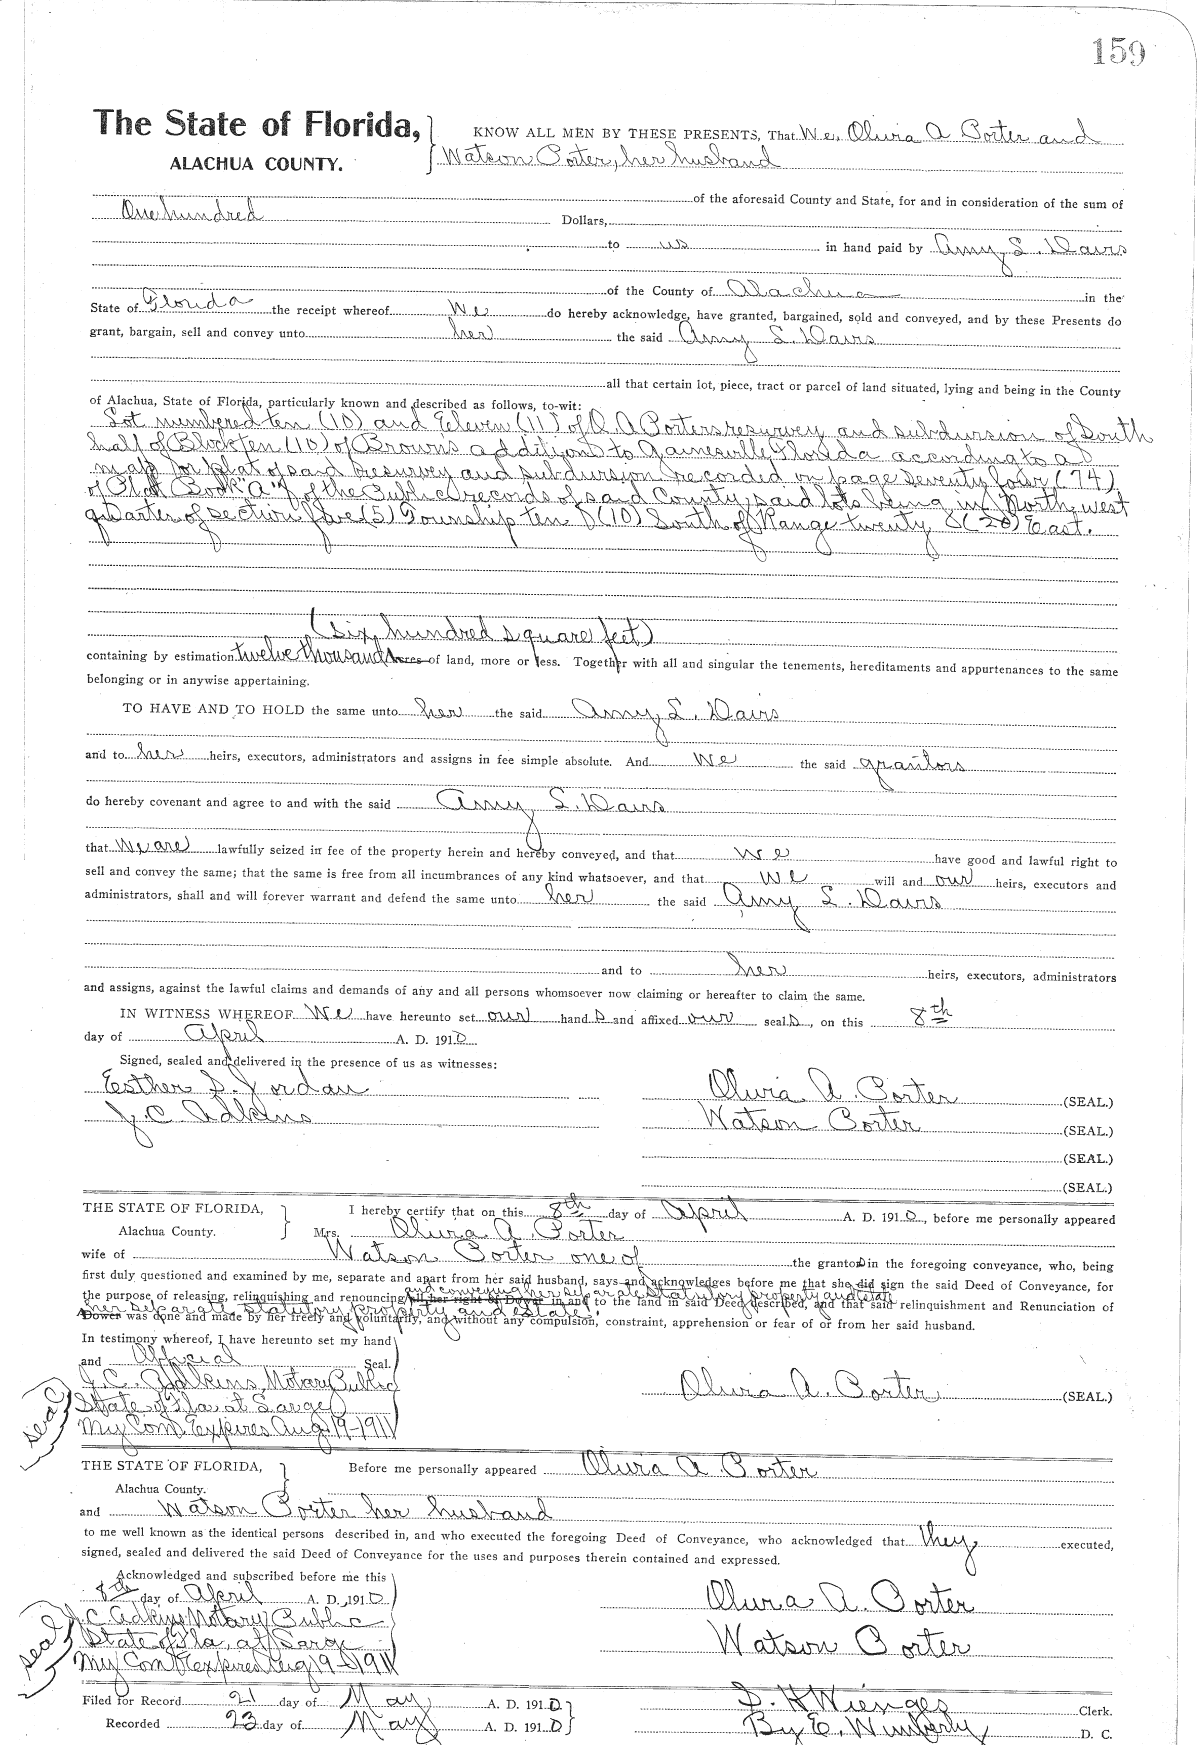 159
The State of Florida,
ALACHUA COUNTY.
KNOW ALL MEN BY THESE PRESENTS, That We, Olivia A Porter and
Watson Porter, her husband
of the aforesaid County and State, for and in consideration of the sum of
One hundred Dollars,
to us in hand paid by Amy L. Davis
of the County of Alachua in the
State of Florida the receipt whereof We do hereby acknowledge, have granted, bargained, sold and conveyed, and by these Presents do
grant, bargain, sell and convey unto her the said Amy L. Davis
all that certain lot, piece, tract or parcel of land situated, lying and being in the County
of Alachua, State of Florida, particularly known and described as follows, to-wit:
Lot numbered ten (10) and Eeleven (11) of O A Porters resurvey and subdivision of South
half of Block ten (10) of Brown's addition to Gainesville Florida according to a
map or plat of said resurvey and subdivision recorded on page Seventy four (74)
of Plat Book "A" of the Public records of said County, said lots being in North west
quarter of section five (5) Township ten (10) South of Range twenty (20) East.
(six hundred square feet)
containing by estimation twelve thousand Acres of land, more or less. Together with all and singular the tenements, hereditaments and appurtenances to the same
belonging or in anywise appertaining.
TO HAVE AND TO HOLD the same unto her the said Amy L. Davis
and to her heirs, executors, administrators and assigns in fee simple absolute. And We the said grantors
do hereby covenant and agree to and with the said Amy L. Davis
that We are lawfully seized in fee of the property herein and hereby conveyed, and that we have good and lawful right to
sell and convey the same; that the same is free from all incumbrances of any kind whatsoever, and that we will and our heirs, executors and
administrators, shall and will forever warrant and defend the same unto her the said Amy L. Davis
and to her heirs, executors, administrators
and assigns, against the lawful claims and demands of any and all persons whomsoever now claiming or hereafter to claim the same.
IN WITNESS WHEREOF We have hereunto set our hand s and affixed our seal s, on this 8th
day of April A. D. 1910
Signed, sealed and delivered in the presence of us as witnesses:
Esther S. Jordan Olivia A. Porter (SEAL.)
J. C. Adkins Watson Porter (SEAL.)
(SEAL.)
(SEAL.)
THE STATE OF FLORIDA, I hereby certify that on this 8th day of April A. D. 1910, before me personally appeared
Alachua County. Mrs. Olivia A. Porter
wife of Watson Porter one of the grantors in the foregoing conveyance, who, being
first duly questioned and examined by me, separate and apart from her said husband, says and acknowledges before me that she did sign the said Deed of Conveyance, for
and conveying her separate Statutory property and estate
the purpose of releasing, relinquishing and renouncing all her right of Dower in and to the land in said Deed described, and that said relinquishment and Renunciation of
her separate statutory property and estate
Dower was done and made by her freely and voluntarily, and without any compulsion, constraint, apprehension or fear of or from her said husband.
In testimony whereof, I have hereunto set my hand
and Official Seal.
J. C. Adkins, Notary Public
State of Fla at Large
My Com. Expires Aug 19-1911
seal
Olivia A. Porter (SEAL.)
THE STATE OF FLORIDA, Before me personally appeared Olivia A Porter
Alachua County.
and Watson Porter her husband
to me well known as the identical persons described in, and who executed the foregoing Deed of Conveyance, who acknowledged that they executed,
signed, sealed and delivered the said Deed of Conveyance for the uses and purposes therein contained and expressed.
Acknowledged and subscribed before me this
8th day of April A. D. 1910
J. C. Adkins Notary Public
State of Fla, at Large
My Com expires Aug 19-1911
seal
Olivia A. Porter
Watson Porter
Filed for Record 21 day of May A. D. 1910 S. H Wienges Clerk.
Recorded 23 day of May A. D. 1910 By E. Wimberly D. C.